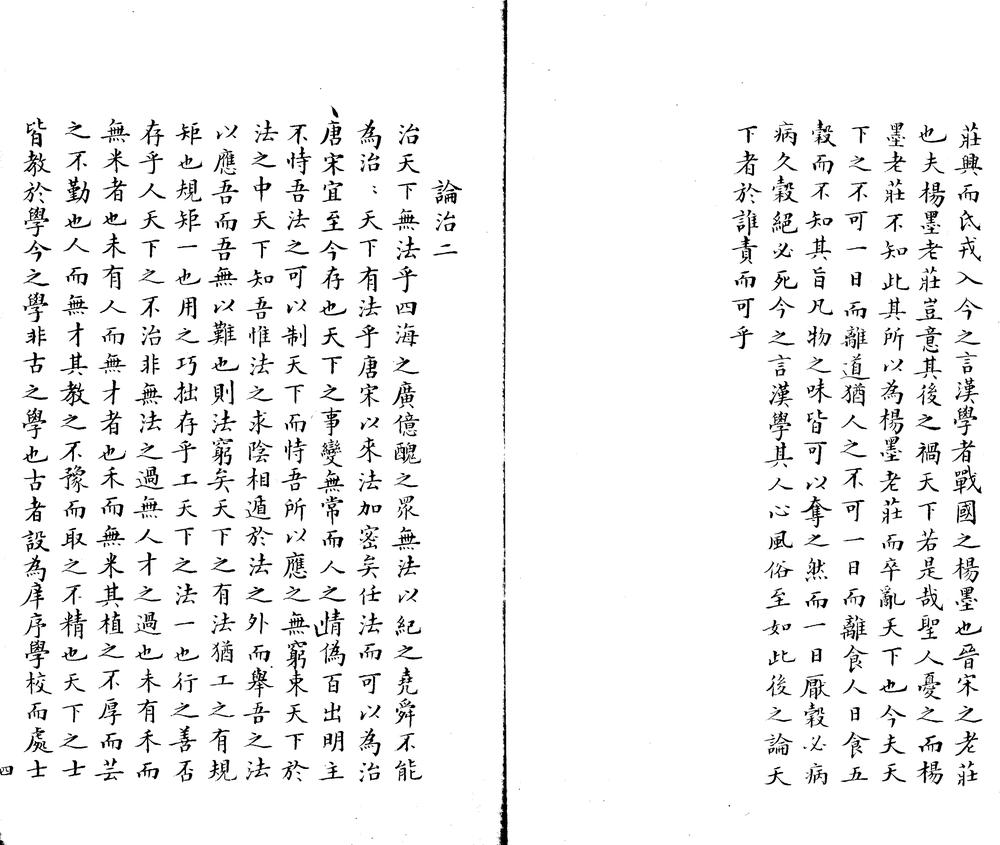 莊興而氐戎入今之言漢學者戰國之楊墨也晉宋之老莊
也夫楊墨老莊豈意其後之禍天下若是哉聖人憂之而楊
墨老莊不知此其所以為楊墨老莊而卒亂天下也今夫天
下之不可一日而離道猶人之不可一日而離食人日食五
穀而不知其旨凡物之味皆可以奪之然而一日厭穀必病
病久穀絕必死今之言漢學其人心風俗至如此後之論天
下者於誰責而可乎
論治二
治天下無法乎四海之廣億醜之眾無法以紀之堯舜不能
為治〻天下有法乎唐宋以來法加密矣任法而可以為治
唐宋宜至今存也天下之事變無常而人之情偽百出明主
不恃吾法之可以制天下而恃吾所以應之無窮束天下於
法之中天下知吾惟法之求陰相遁於法之外而舉吾之法
以應吾而吾無以難也則法窮矣天下之有法猶工之有規
矩也規矩一也用之巧拙存乎工天下之法一也行之善否
存乎人天下之不治非無法之過無人才之過也未有禾而
無米者也未有人而無才者也禾而無米其植之不厚而芸
之不勤也人而無才其教之不豫而取之不精也天下之士
皆教於學今之學非古之學也古者設為庠序學校而處士
四